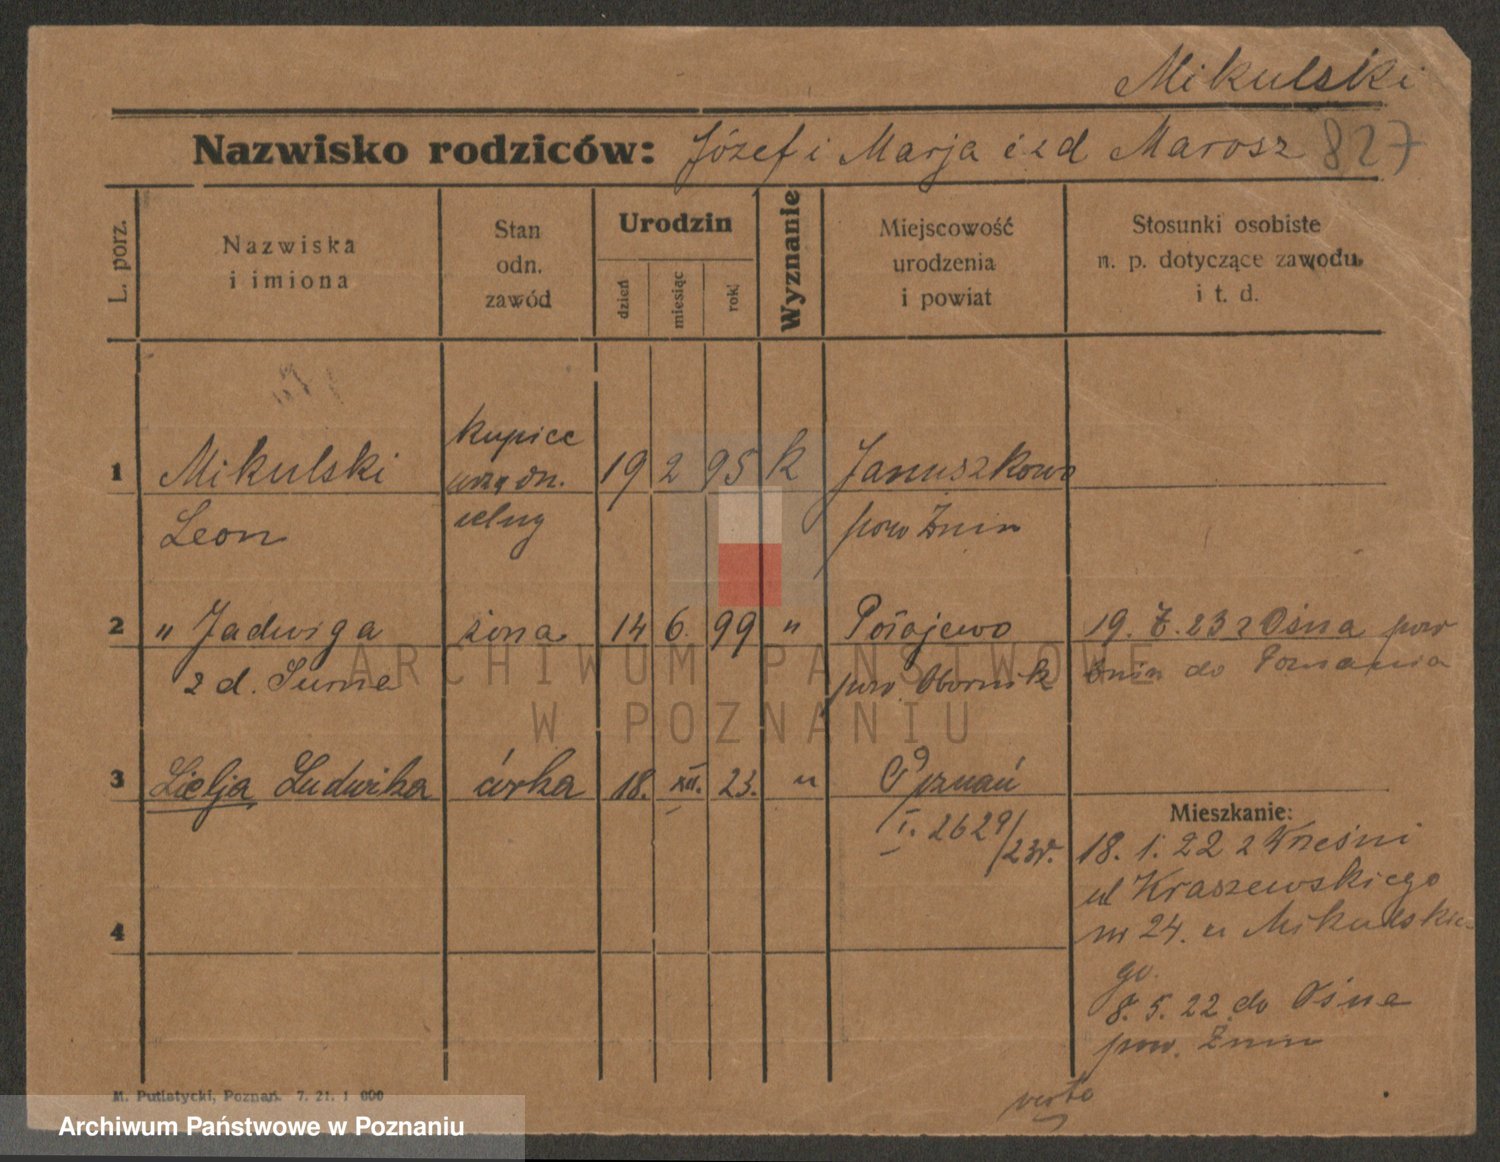 Mikulski
Nazwisko rodziców: Józef i Marja i zd Marosz 827
L. porz.
Nazwiska
i imiona
Stan
odn.
zawód
Urodzin
dzień
miesiąc
rok
Wyznanie
Miejscowość
urodzenia
i powiat
Stosunki osobiste
n. p. dotyczące zawodu
i t. d.
kupiec
1 Mikulski 19 2 95 k Januszkowo
Leon pow Żnin
2 " Jadwiga żona 14 6. 99 " 19. 7. 23 z Ośna pow
z d. pow. Obornik Żnin do Poznania
3 Ludwika córka 18. XII. 23. " Poznań
I. 2629/23r.
Mieszkanie:
18. 1. 22 z Wrześni
ul Kraszewskiego
nr 24. u Mikulskie
go.
8. 5. 22 do Ośna
pow. Żnin
4
M. Putiatycki, Poznań. 7. 21. 1 000
verto
ARCHIWUM PAŃSTWOWE
W POZNANIU
Archiwum Państwowe w Poznaniu